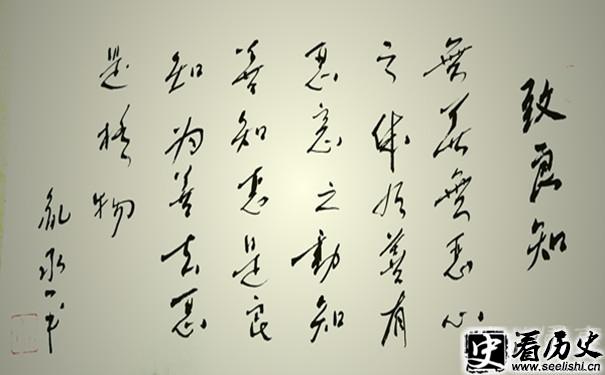 致良知
無善無惡心
之体有善有
惡意之動知
善知惡是良
知為善去惡
是格物
史 看历史
www.seelishi.cn